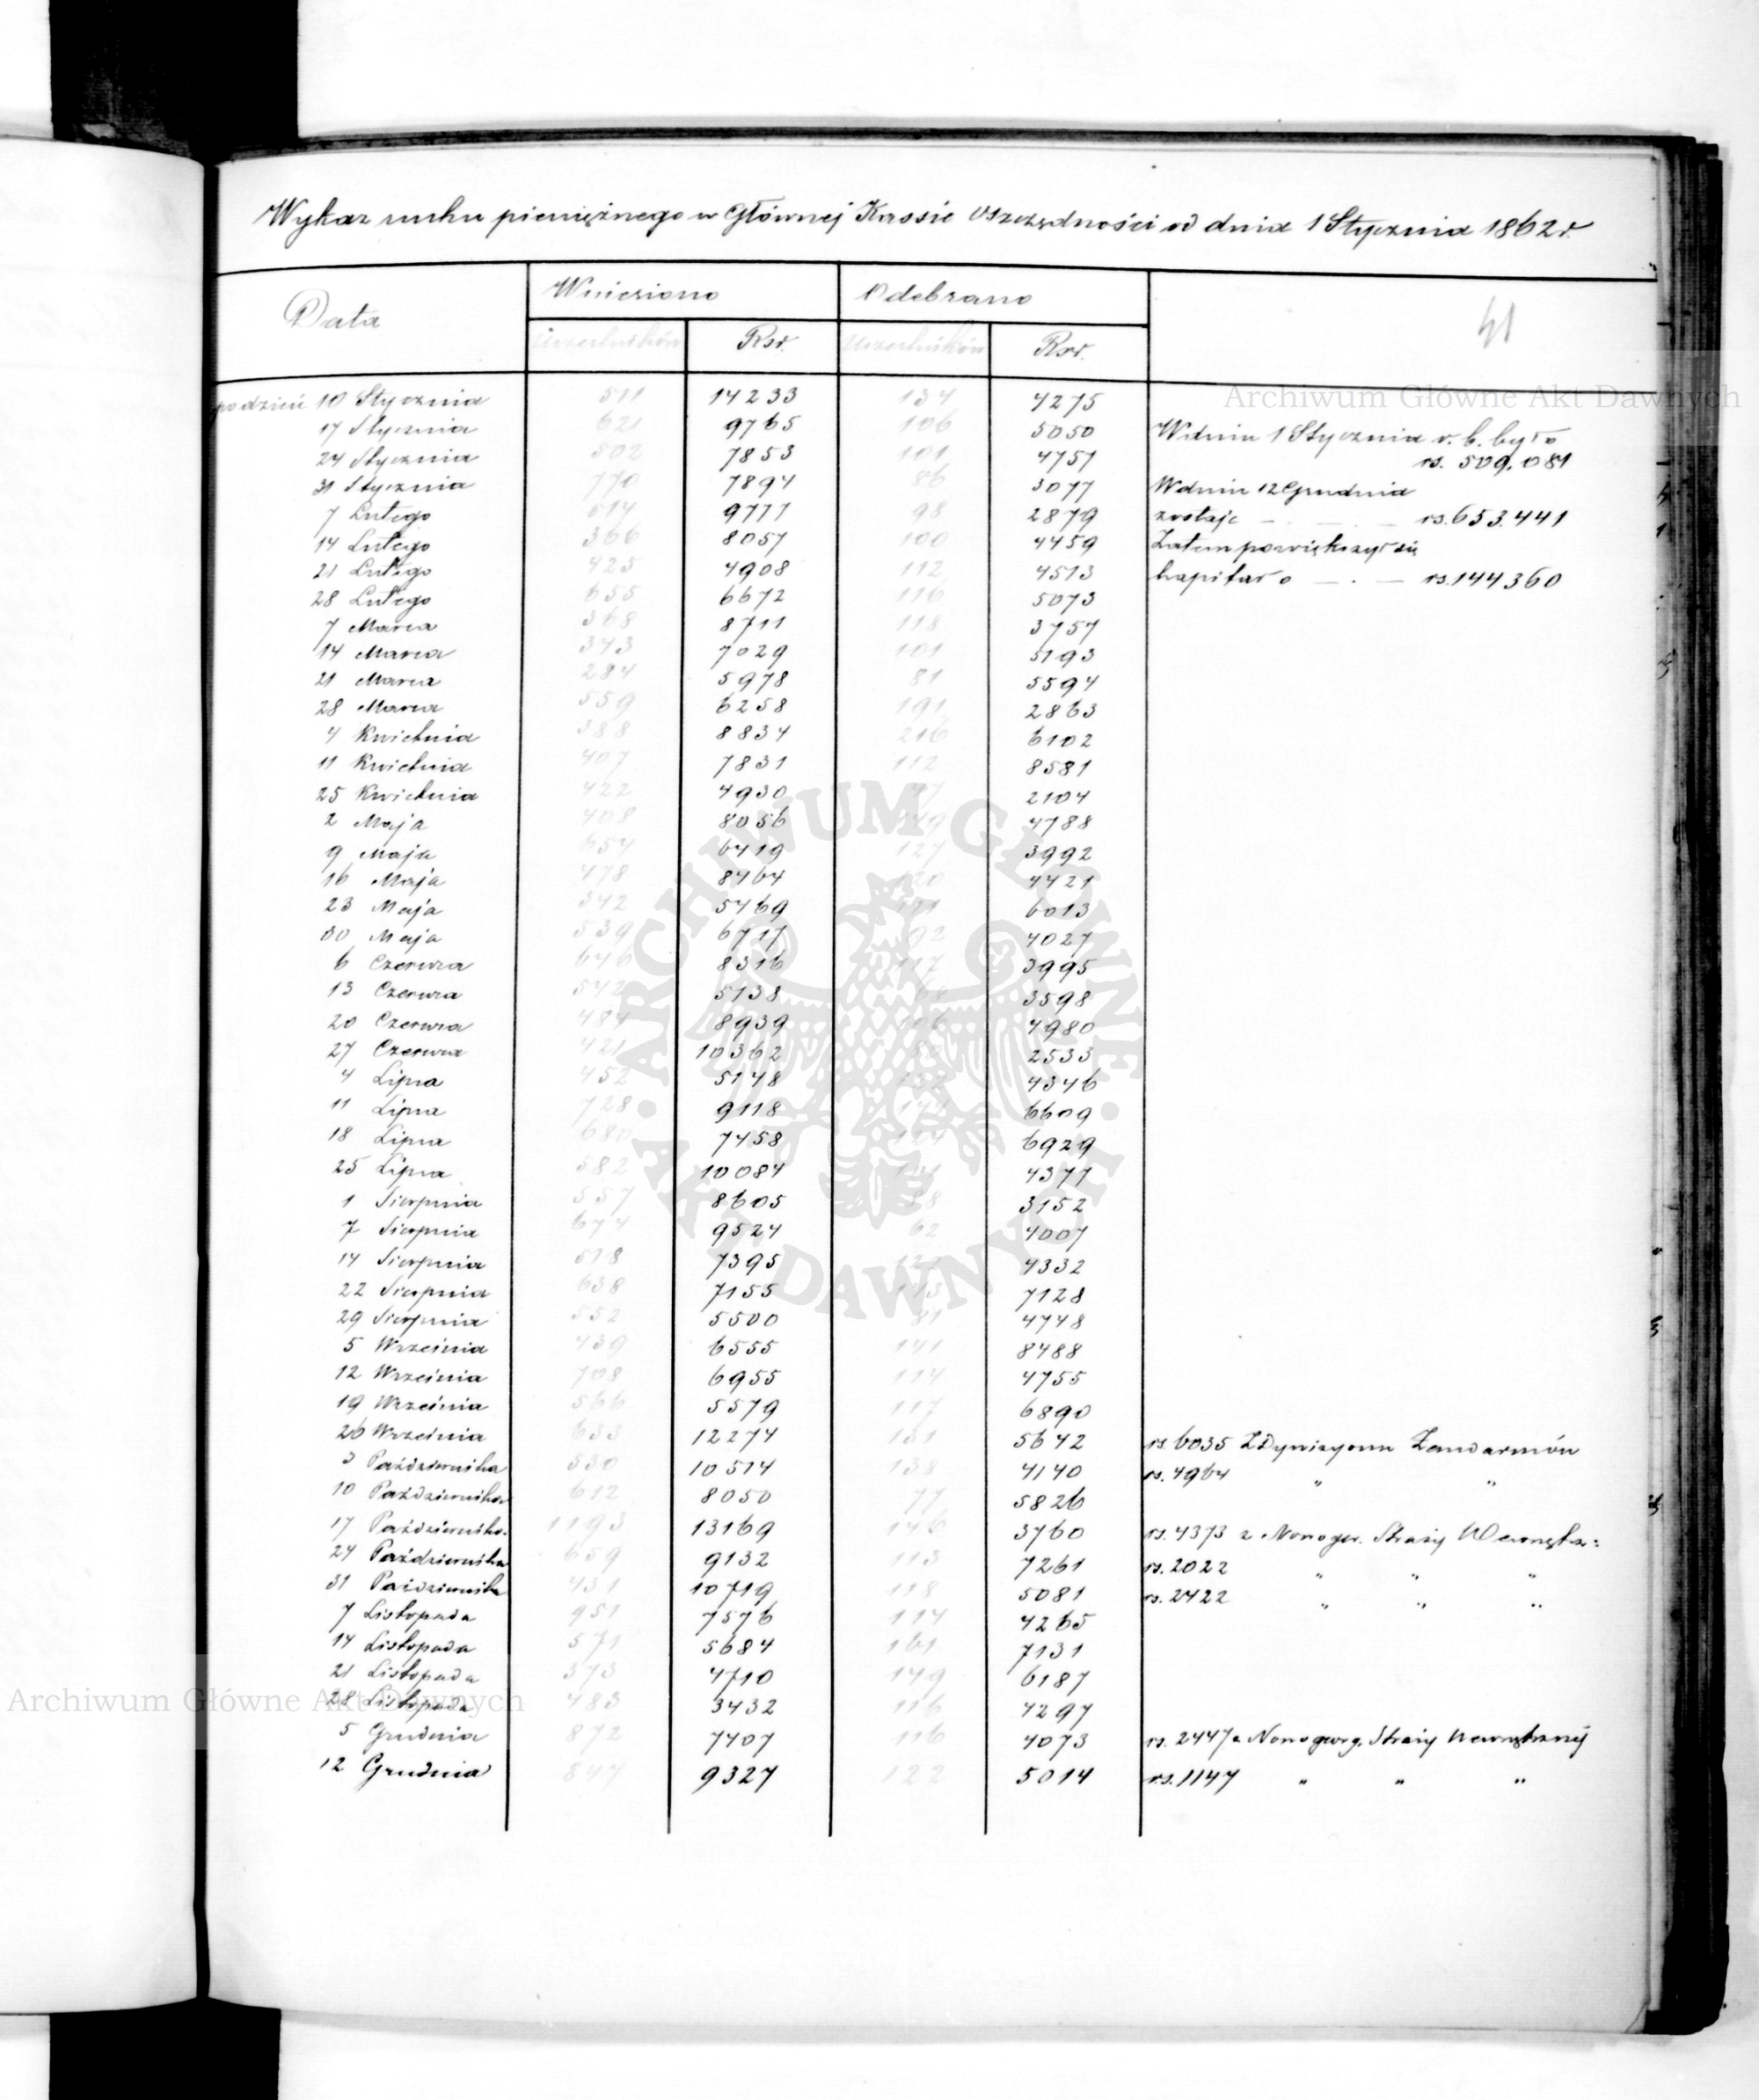 Wykaz ruchu pieniężnego w Głównej Kassie Oszczędności od dnia 1 Stycznia 1862 r.
Data Wniesiono Odebrano 41
Uczestników Rsr. Uczestników Rsr.
Archiwum Główne Akt Dawnych
po dzień 10 Stycznia 511 14233 134 4275
17 Stycznia 621 9765 106 5050 W dniu 1 Stycznia r. b. było
24 Stycznia 502 7853 101 4757 rs. 509.081
31 Stycznia 770 7894 86 3077 W dniu 12 Grudnia
7 Lutego 614 9777 98 2879 zostaje — . — . — rs. 653.441
14 Lutego 366 8057 100 4459 Zatem powiększył się
21 Lutego 425 4908 112 4513 kapitał o — . — rs. 144360
28 Lutego 655 6672 116 5073
7 Marca 368 8711 118 3757
14 Marca 343 7029 101 5193
21 Marca 284 5978 81 5594
28 Marca 559 6258 191 2863
4 Kwietnia 388 8834 216 6102
11 Kwietnia 407 7831 112 8581
25 Kwietnia 422 4930 2104
2 Maja 408 8056 4788
9 Maja 654 6419 127 3992
16 Maja 478 8464 4421
23 Maja 342 5469 6013
30 Maja 539 6717 4027
6 Czerwca 646 8316 3995
13 Czerwca 542 5138 3598
20 Czerwca 484 8939 4980
27 Czerwca 421 10362 2533
4 Lipca 452 5148 4346
11 Lipca 728 9118 6609
18 Lipca 680 7458 6929
25 Lipca 582 10084 4377
1 Sierpnia 557 8605 3152
7 Sierpnia 674 9524 62 4007
14 Sierpnia 518 7395 4332
22 Sierpnia 638 7155 7128
29 Sierpnia 552 5500 81 4748
5 Września 439 6555 141 8488
12 Września 708 6955 114 4755
19 Września 566 5579 117 6890
26 Września 633 12274 131 5642 rs. 6035 Z Dywizyonu Żandarmów
3 Października 530 10514 138 4140 rs. 4964 " "
10 Października 612 8050 77 5826
17 Października 1193 13169 146 3760 rs. 4373 z Nowogor. Straży Wewnętrz:
24 Października 659 9132 113 7261 rs. 2022 " " "
31 Października 431 10719 118 5081 rs. 2422 " " "
7 Listopada 951 7576 114 4265
14 Listopada 571 5684 161 7131
21 Listopada 373 4710 149 6187
28 Listopada 483 3432 116 4297
Archiwum Główne Akt Dawnych
5 Grudnia 872 7407 116 4073 rs. 2447 z Nowogeorg. Straży Wewnętrznej
12 Grudnia 847 9327 122 5014 rs. 1147 " " "
ARCHIWUM GŁÓWNE AKT DAWNYCH